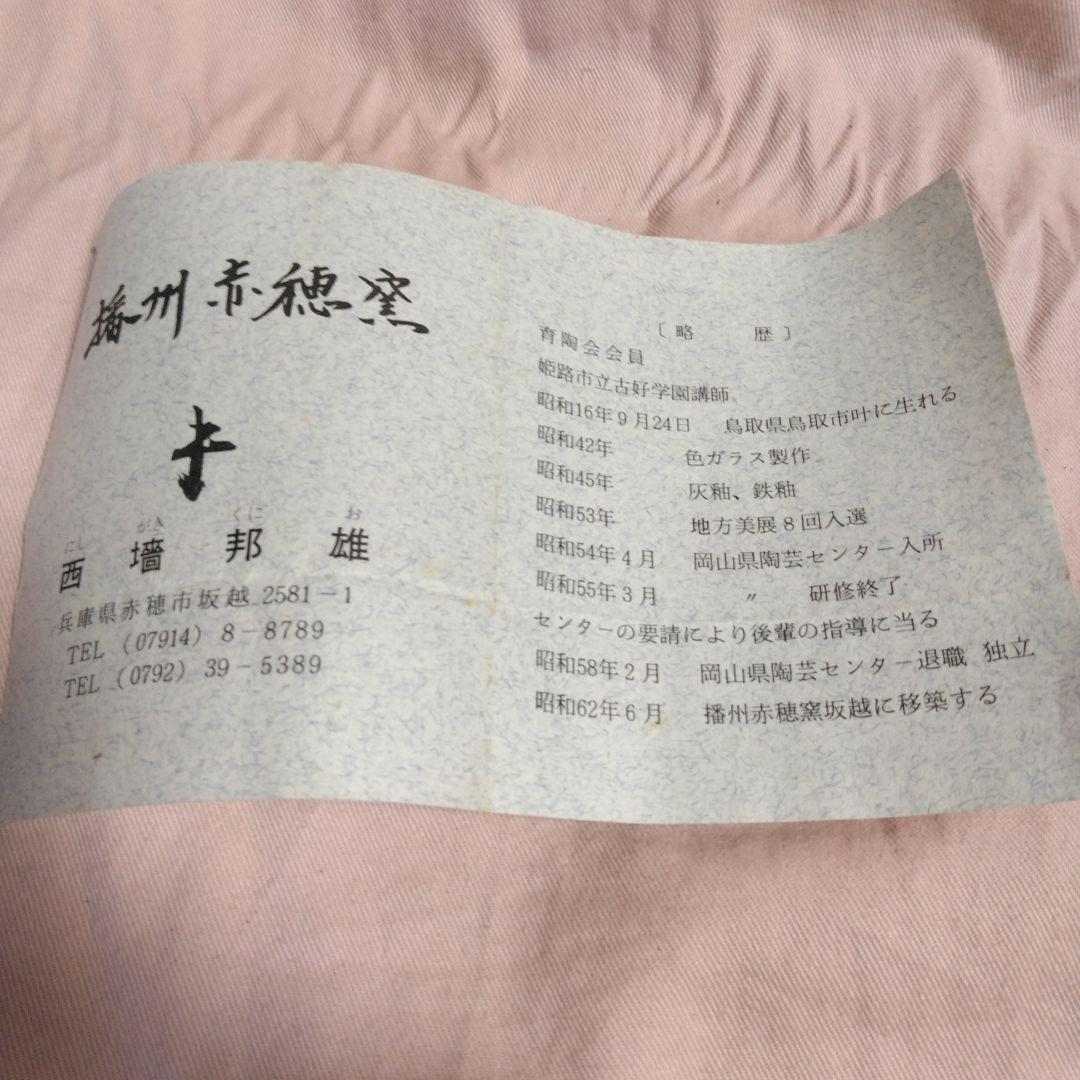 播州赤穂窯
にし がき くに お
西 墻 邦 雄
兵庫県赤穂市坂越 2581−1
TEL (07914) 8−8789
TEL (0792) 39−5389
〔略 歴〕
育陶会会員
姫路市立古好学園講師
昭和16年9月24日 鳥取県鳥取市叶に生れる
昭和42年 色ガラス製作
昭和45年 灰釉、鉄釉
昭和53年 地方美展8回入選
昭和54年4月 岡山県陶芸センター入所
昭和55年3月 〃 研修終了
センターの要請により後輩の指導に当る
昭和58年2月 岡山県陶芸センター退職 独立
昭和62年6月 播州赤穂窯坂越に移築する